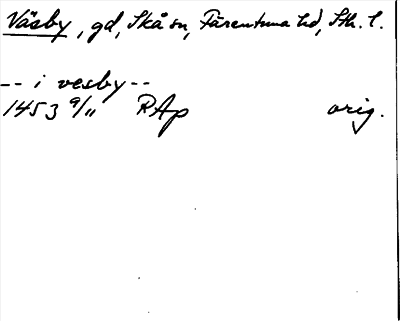 Väsby, gd, Skå sn, Färentuna hd, Sth. l.
-- i vesby --
1453 9/11 RAp orig.